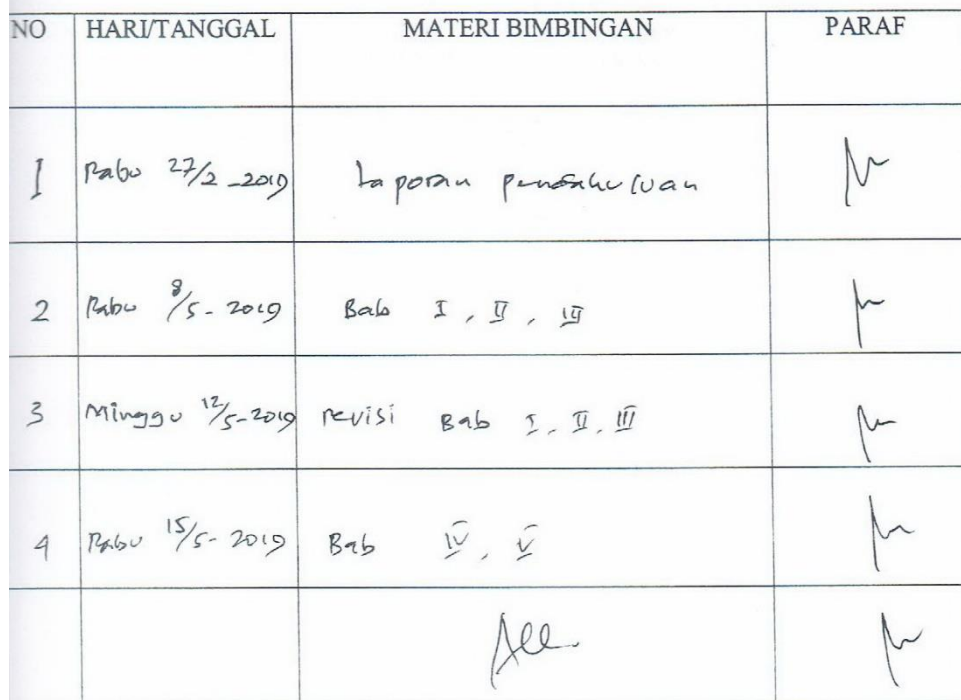 NO HARI/TANGGAL MATERI BIMBINGAN PARAF
1 Rabu 27/2 - 2019 Laporan pendahuluan
2 Rabu 8/5 - 2019 Bab I, II, III
3 Minggu 12/5 - 2019 revisi Bab I, II, III
4 Rabu 15/5 - 2019 Bab IV, V